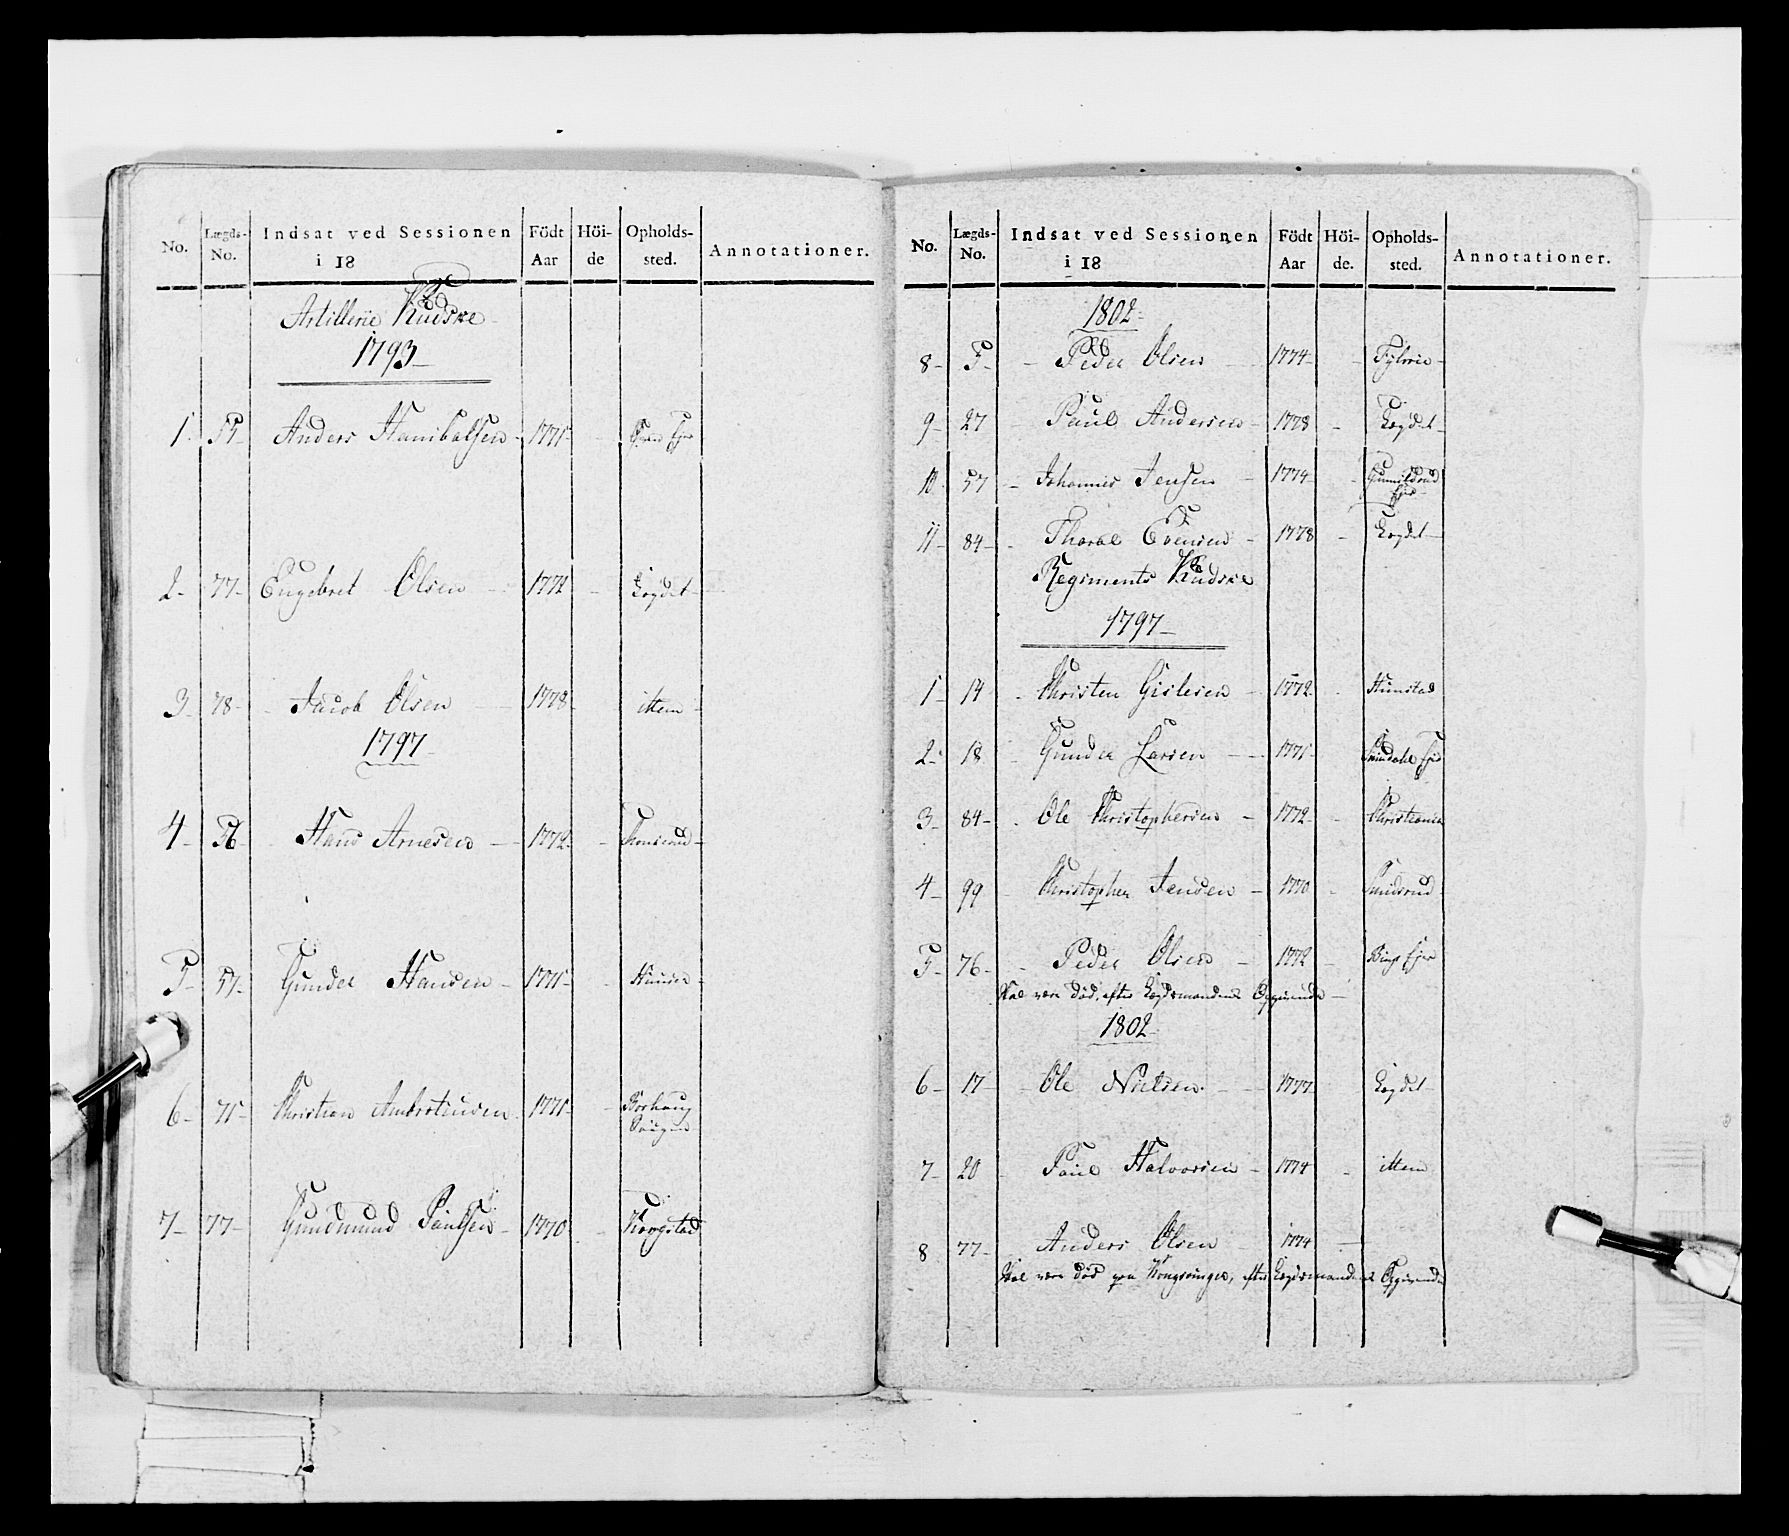 No. Lægds-No. Indsat ved Sessionen i 18 Födt Aar Höi-de Opholds-sted. Annotationer.
Artillerie Kudske
1793
1. Anders Hanibalsen 1771
2 77 Engebret Olsen 1772 Lægdet
3 78 Jacob Olsen 1773 item
1797
4 56 Hans Arnesen 1772
5 57 Gunder Hansen 1771
6 71 Christian Ambrosiusen 1771
7 77 Gundmund Paulsen 1770 Krogstad
No. Lægds-No. Indsat ved Sessionen i 18 Födt Aar Höi-de. Opholds-sted. Annotationer.
1802
8 5 Peder Olsen 1774
9 27 Paul Andersen 1778 Lægdet
10 57 Johannes Jensen 1774
11 84 Thoral Evensen 1778 Lægdet
Regiments Kudske
1797
1 14 Christen Gislesen 1772
2 18 Gunder Larsen 1771
3 84 Ole Christophersen 1772 Christiania
4 99 Christopher Jensen 1770
5 76 Peder Olsen 1772
skal være död, efter Lægdsmandens Opgivende
1802
6 17 Ole Nielsen 1777 Lægdet
7 20 Paul Halvorsen 1774 item
8 77 Anders Olsen 1774
skal være död paa Kongsvinger, efter Lægdsmandens Opgivende